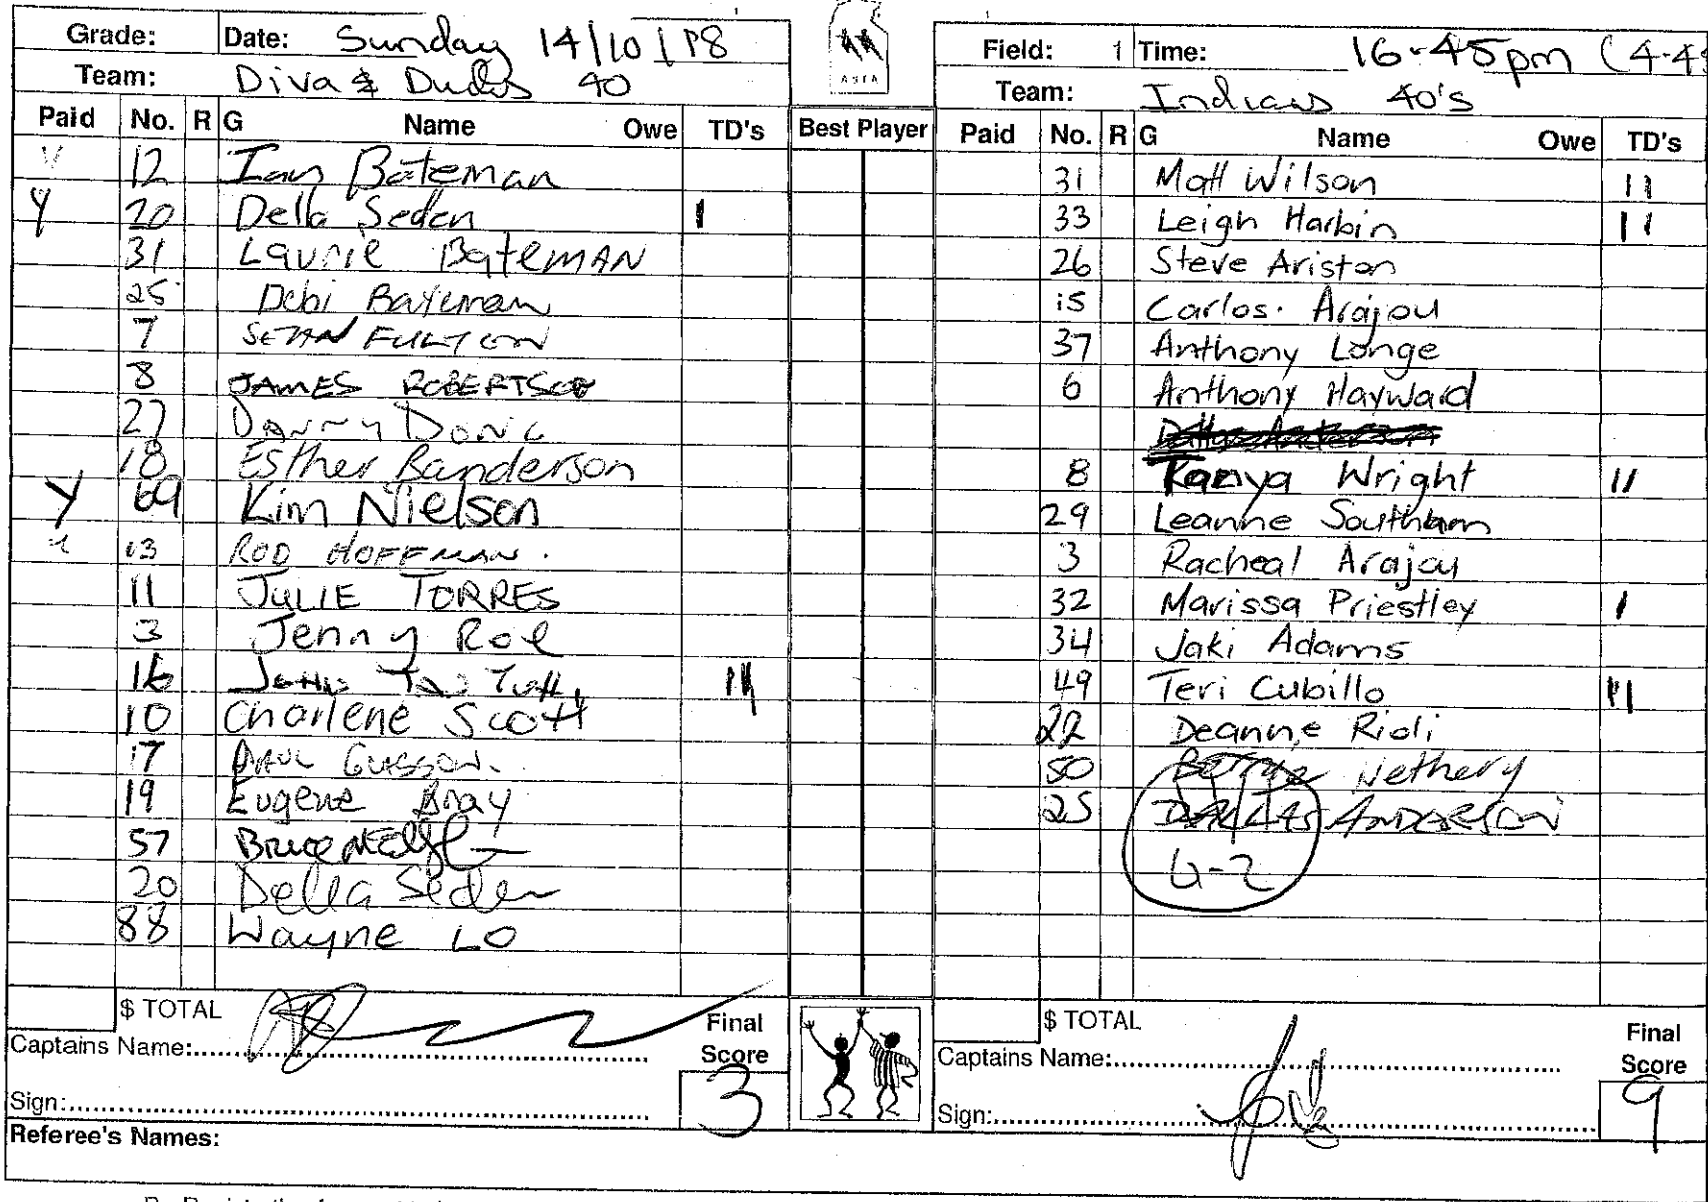 Grade: Date: Sunday 14/10/18
Team: Diva & Dudes 40
Paid No. R G Name Owe TD's Best Player
12 Ian Bateman
Y 20 Della Seden I
31 Laurie BateMAN
25 Debi Bateman
7 SEAN FULTON
8 JAMES ROBERTSON
27 DANNY DONG
18 Esther Banderson
Y 69 Kim Nielsen
13 ROD HOFFMAN.
11 JULIE TORRES
3 Jenny Roe
16 II
10 Charlene Scott
17 PAUL
19 Eugene Bray
57 Bruce
20 Della Seden
88 Wayne LO
$ TOTAL
Captains Name:
Sign:
Final Score
3
Referee's Names:
ASTA
Field: 1 Time: 16-45pm (4-45
Team: Indians 40's
Paid No. R G Name Owe TD's
31 Matt Wilson II
33 Leigh Harbin II
26 Steve Ariston
15 Carlos. Arajou
37 Anthony Longe
6 Anthony Hayward
8 Tanya Wright II
29 Leanne Southam
3 Racheal Arajou
32 Marissa Priestley I
34 Jaki Adams
49 Teri Cubillo II
22 Deanne Rioli
50 Nethery
25 DALLAS ANDERSON
6-2
$ TOTAL
Captains Name:
Sign:
Final Score
9